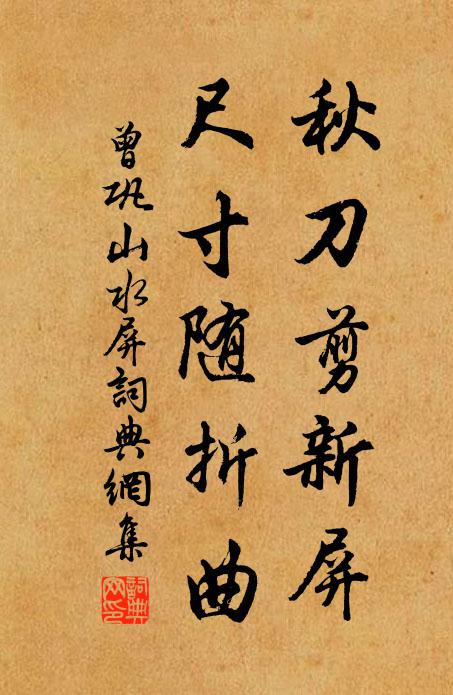 秋刀剪新屏
尺寸随折曲
曾巩山水屏詞典網集
詞典
网印